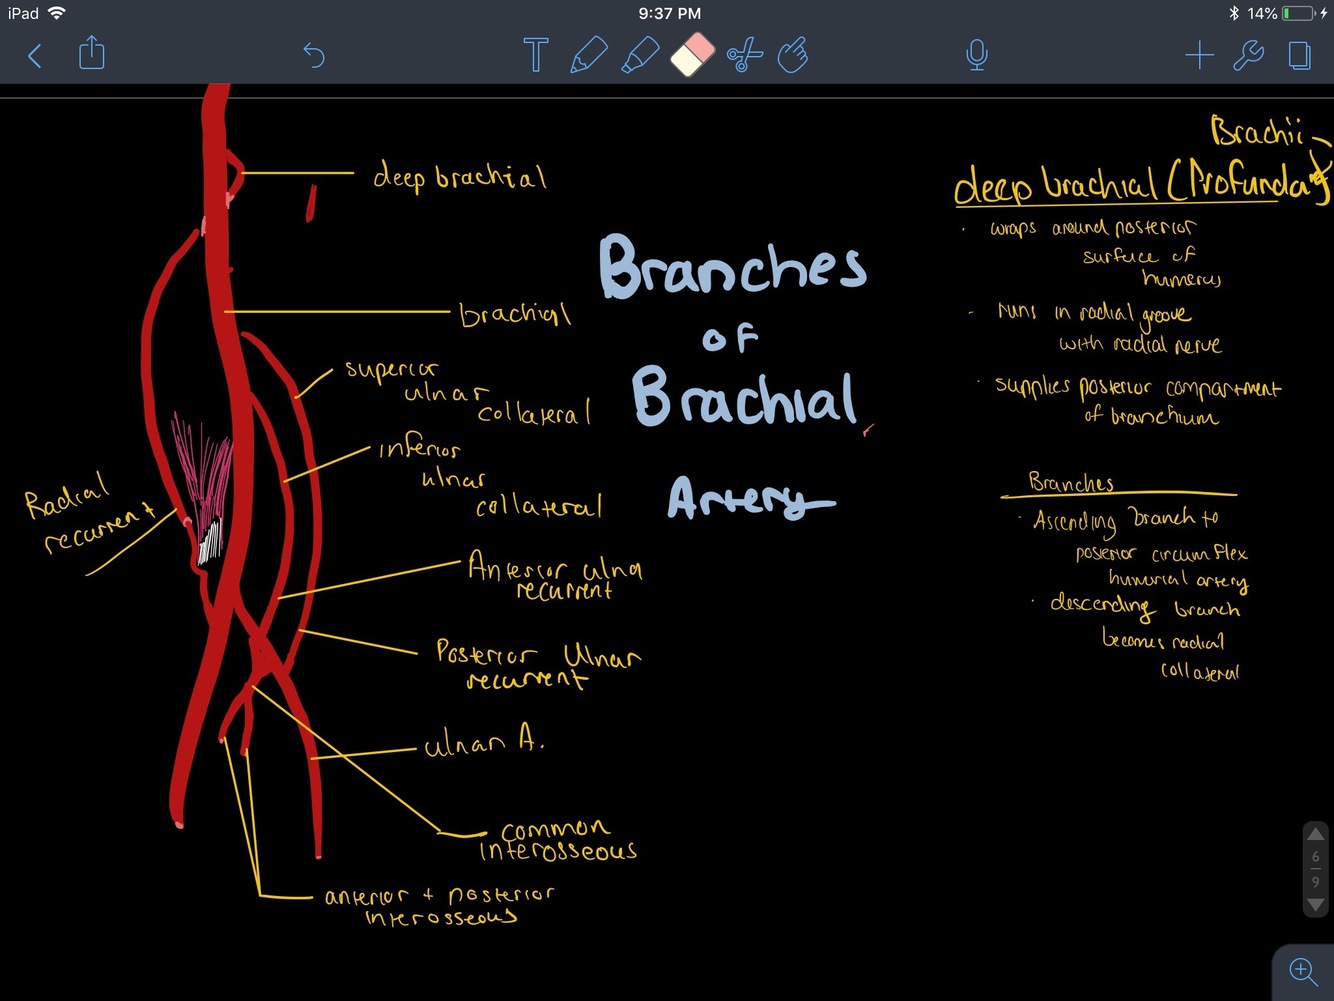 iPad
9:37 PM
14%
T
deep brachial
brachial
superior
ulnar
collateral
inferior
ulnar
collateral
Radial
recurrent
Anterior ulna
recurrent
Posterior Ulnar
recurrent
ulnar A.
common
interosseous
anterior + posterior
interosseous
Branches
of
Brachial
Artery
Brachii
deep brachial (Profunda)
· wraps around posterior
surface of
humerus
· runs in radial groove
with radial nerve
· supplies posterior compartment
of branchium
Branches
· Ascending branch to
posterior circumflex
humurial artery
· descending branch
becomes radial
collateral
6
9